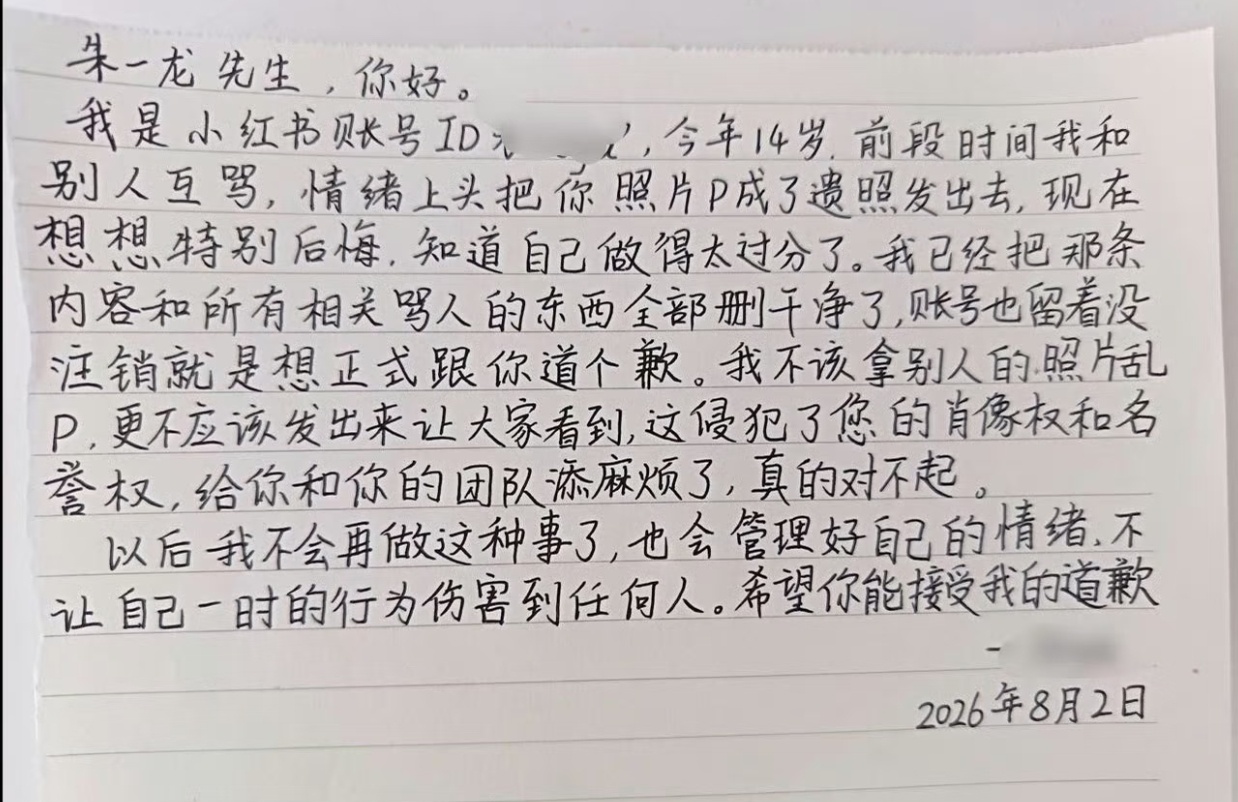 朱一龙先生，你好。
我是小红书账号ID，今年14岁.前段时间我和
别人互骂，情绪上头把你照片P成了遗照发出去,现在
想想特别后悔.知道自己做得太过分了。我已经把那条
内容和所有相关骂人的东西全部删干净了,账号也留着没
注销就是想正式跟你道个歉。我不该拿别人的照片乱
P,更不应该发出来让大家看到,这侵犯了您的肖像权和名
誉权,给你和你的团队添麻烦了,真的对不起。
以后我不会再做这种事了,也会管理好自己的情绪.不
让自己一时的行为伤害到任何人。希望你能接受我的道歉
2026年8月2日